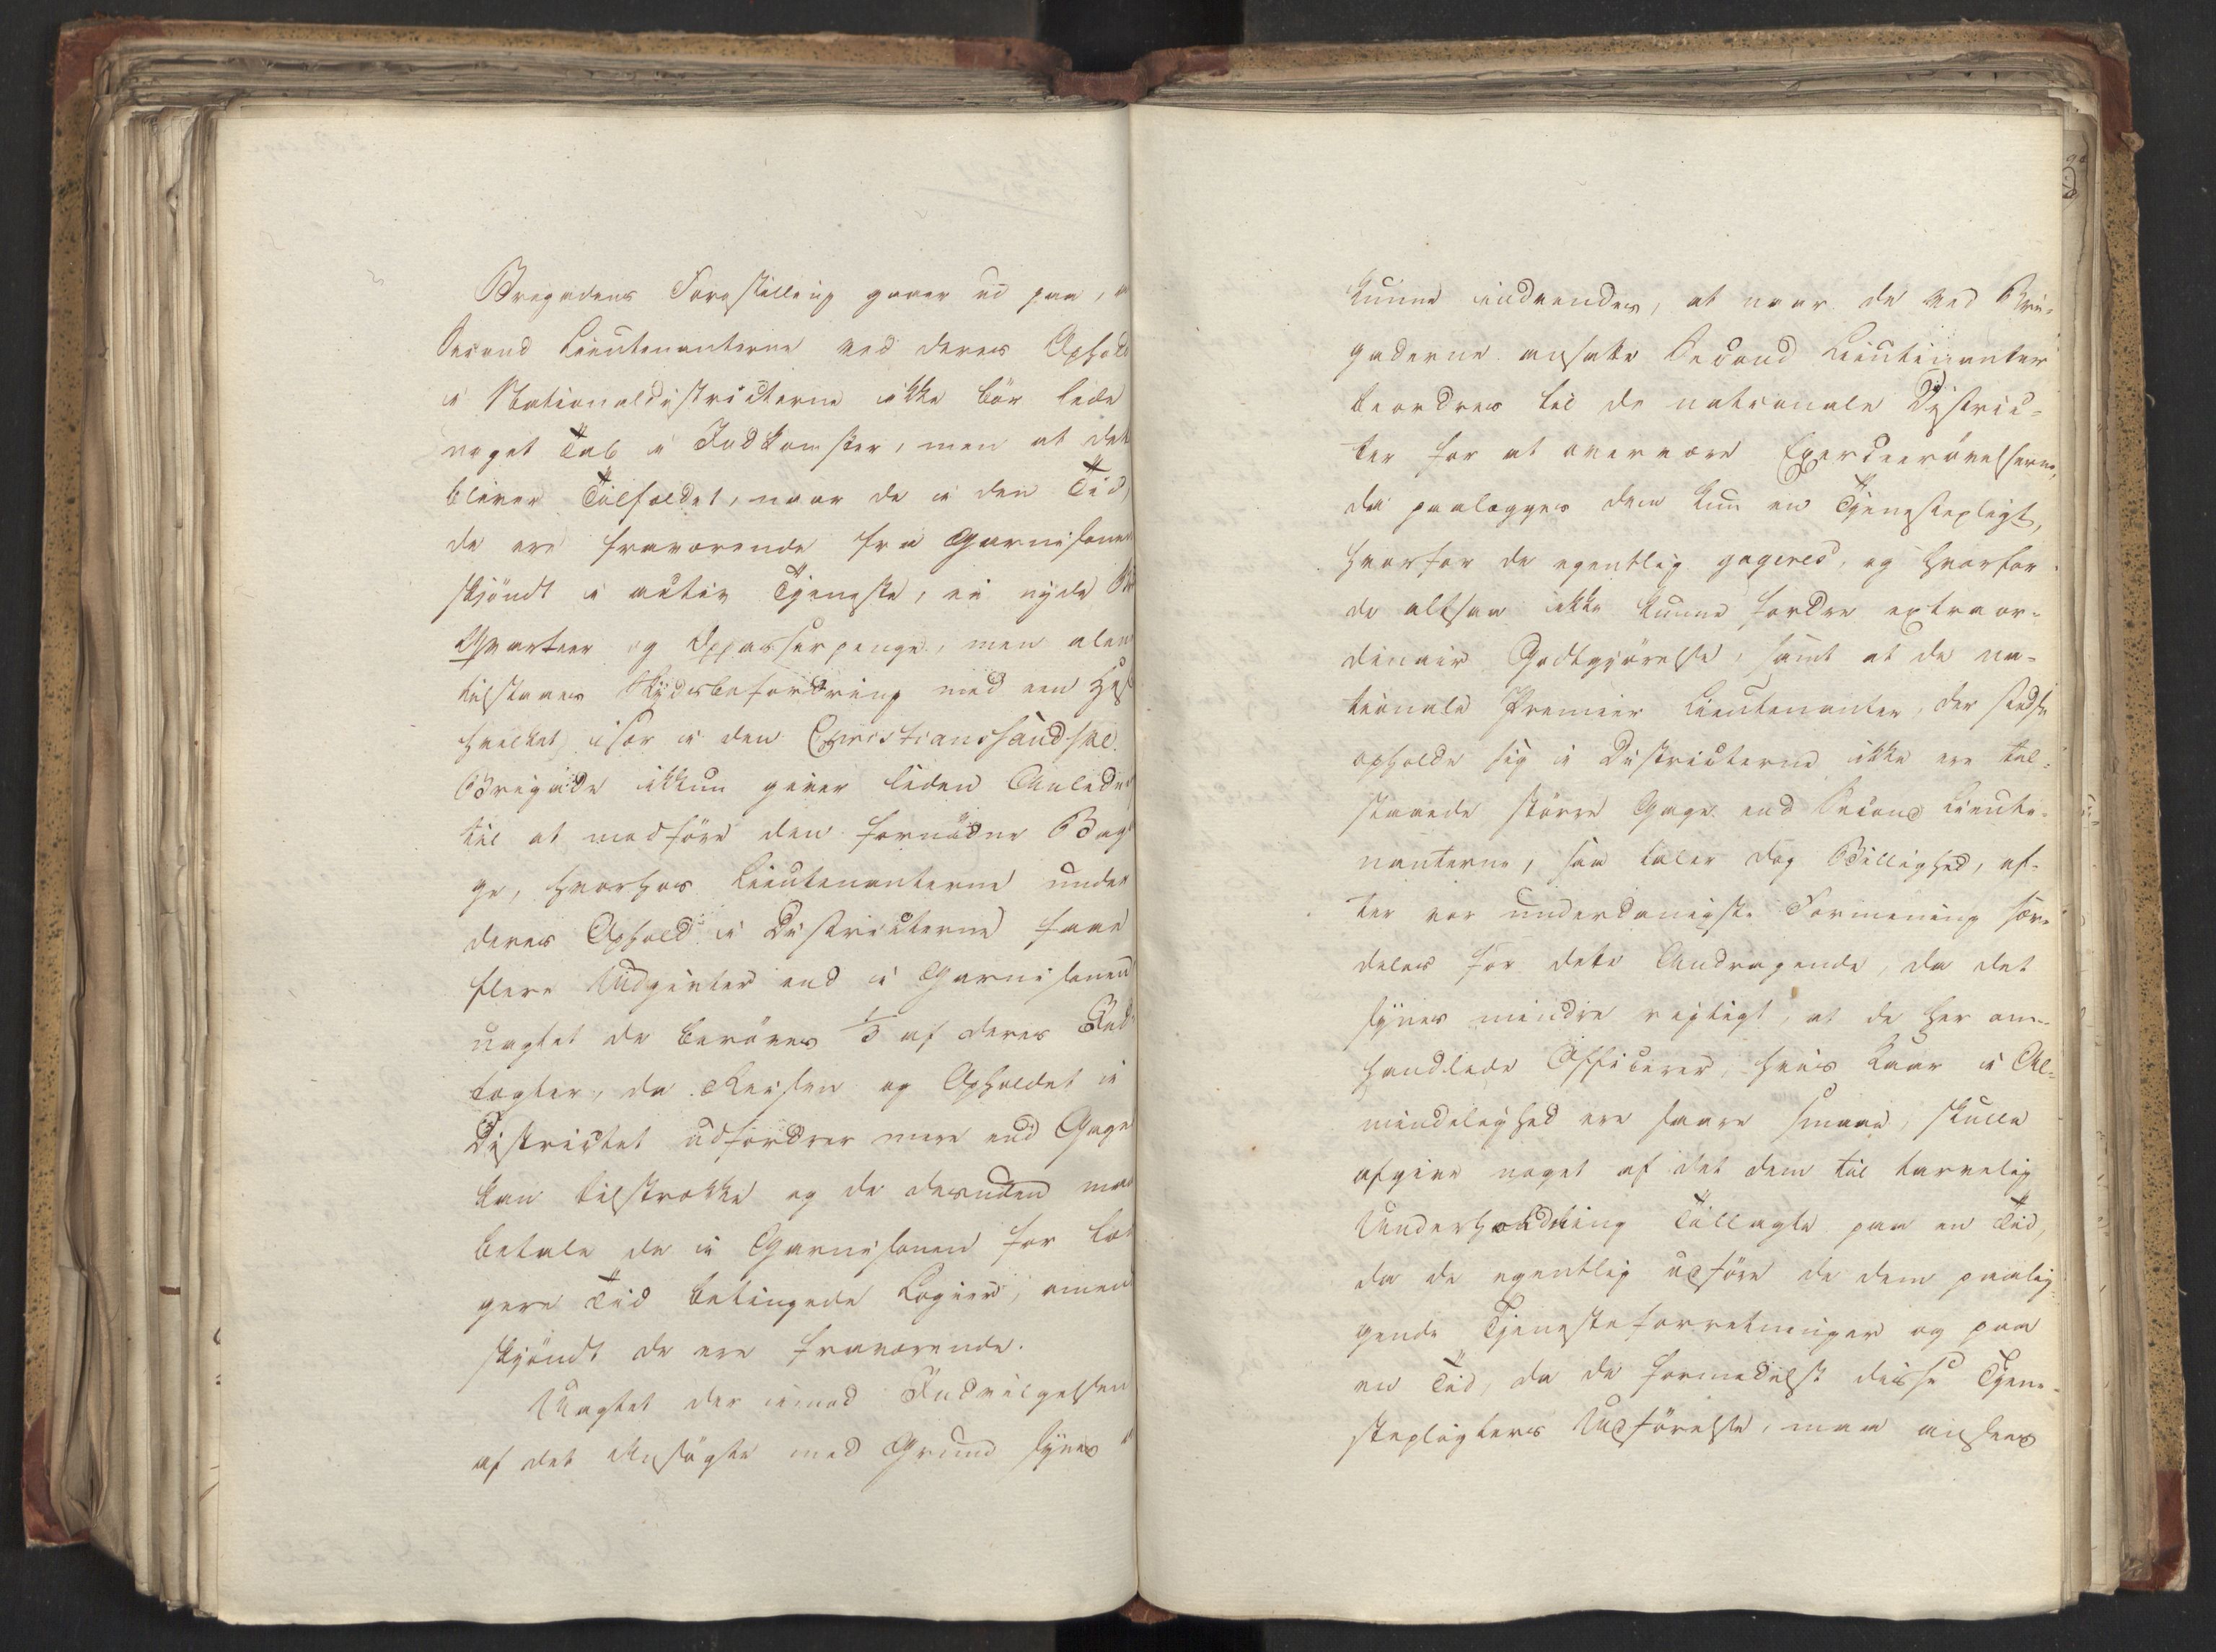 Bregadens Forestilling gaaer ud paa, a
Second Lieutenanterne ved deres Ophold
i Nationaldistricterne ikke bör lide
noget Tab i Indkomster, men at det
bliver Tilfældet, naar de i den Tid,
de ere fraværende fra Garnisonen
skjöndt i activ Tjeneste, ei nyde
Qvarteer og Oppasserpenge, men alene
tilstaaes Skydsbefordring med een Hest
hvilket især i den Christianssandske
Brigade ikkun giver liden Anledning
til at medföre den fornödne Baga
ge, hvorhos Lieutenanterne under
deres Ophold i Districterne faae
flere Udgivter end i Garnisonen
uagtet de beröves 1/3 af deres Ind
tægter, da Reisen og Opholdet i
Districtet udfordrer mere end Gagen
kan tilstrække og de desuden maa
betale de i Garnisonen for læn
gere Tid betingede Logier, omend
skjöndt de ere fraværende.
Uagtet der imod Indvilgelsen
af det Ansögte med Grund synes
kunne indvendes, at naar de ved Bri-
gaderne ansatte Second Lieutenanter
beordres til de nationale Distric-
ter for at overvære Exerceerövelserne,
da paalægges dem kun en Tjenestepligt,
hvorfor de egentlig gageres, og hvorfor
de altsaa ikke kunne fordre extraor-
dinair Godtgjörelse, samt at de na-
tionale Premier Lieutenanter, der stedse
opholde sig i Districterne ikke ere til-
staaede större Gage end Second Lieute-
nanterne, saa taler dog Billighed, ef-
ter vor underdanigste Formening sær-
deles for dette Andragende, da det
synes mindre rigtigt, at de her om-
handlede Officerer, hvis Kaar i Al-
mindelighed ere saare smaae, skulle
afgive noget af det dem til tarvelig
Underholdning Tillagte paa en Tid,
da de egentlig udföre de dem paalig-
gende Tjenesteforretninger og paa
en Tid, da de formedelst disse Tjene-
stepligters Udförelse, maa ansees